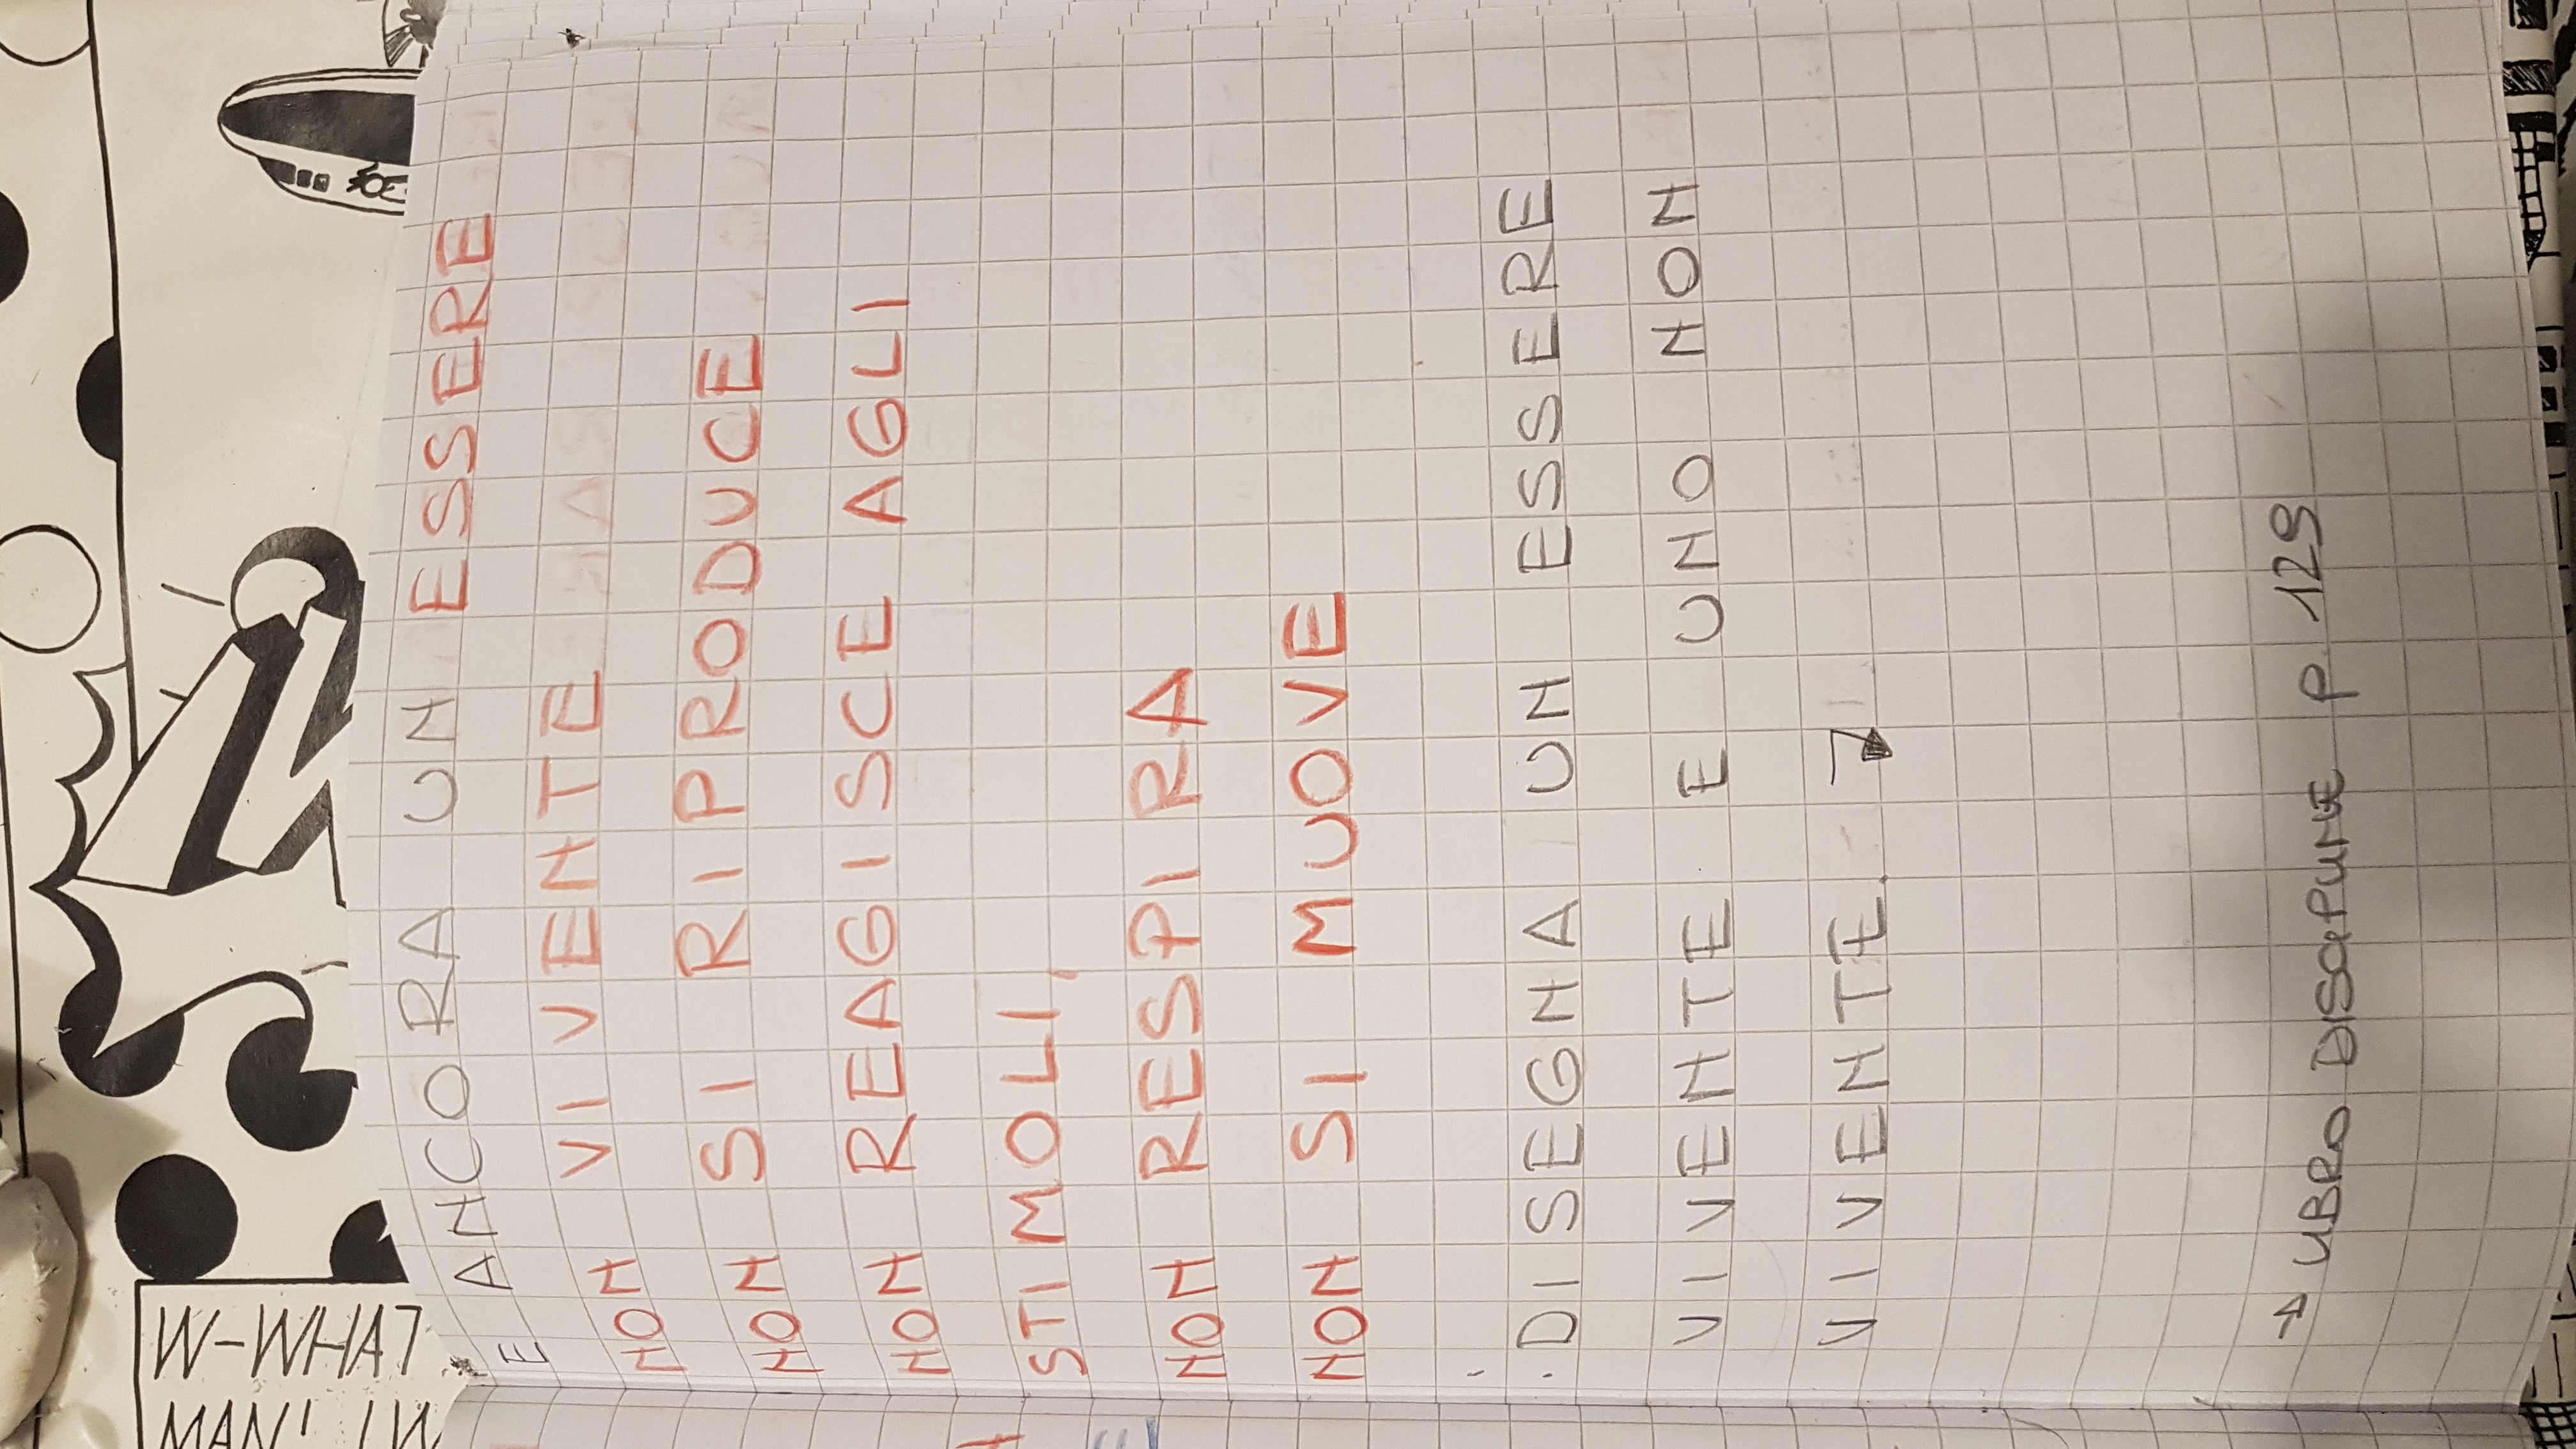 W-WHA?
E ANCORA UN ESSERE
NON VIVENTE
NON SI RIPRODUCE
NON REAGISCE AGLI
STIMOLI,
NON RESPIRA
NON SI MUOVE
DISEGNA UN ESSERE
VIVENTE E UNO NON
VIVENTE.
→ LIBRO DISCIPLINE p. 129